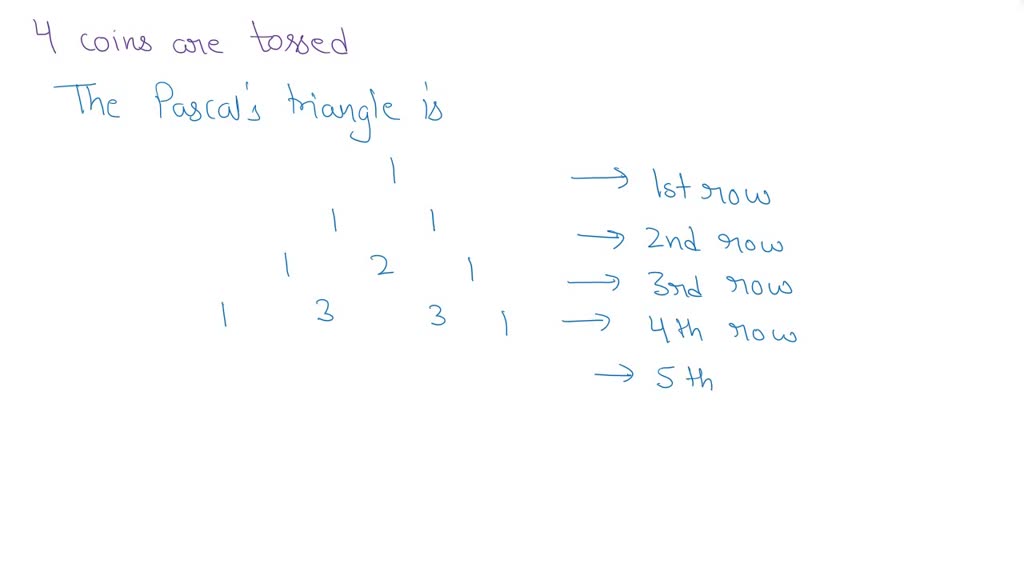 4 coins are tossed
The Pascal's triangle is
1 → 1st row
1 1 → 2nd row
1 2 1 → 3rd row
1 3 3 1 → 4th row
→ 5th